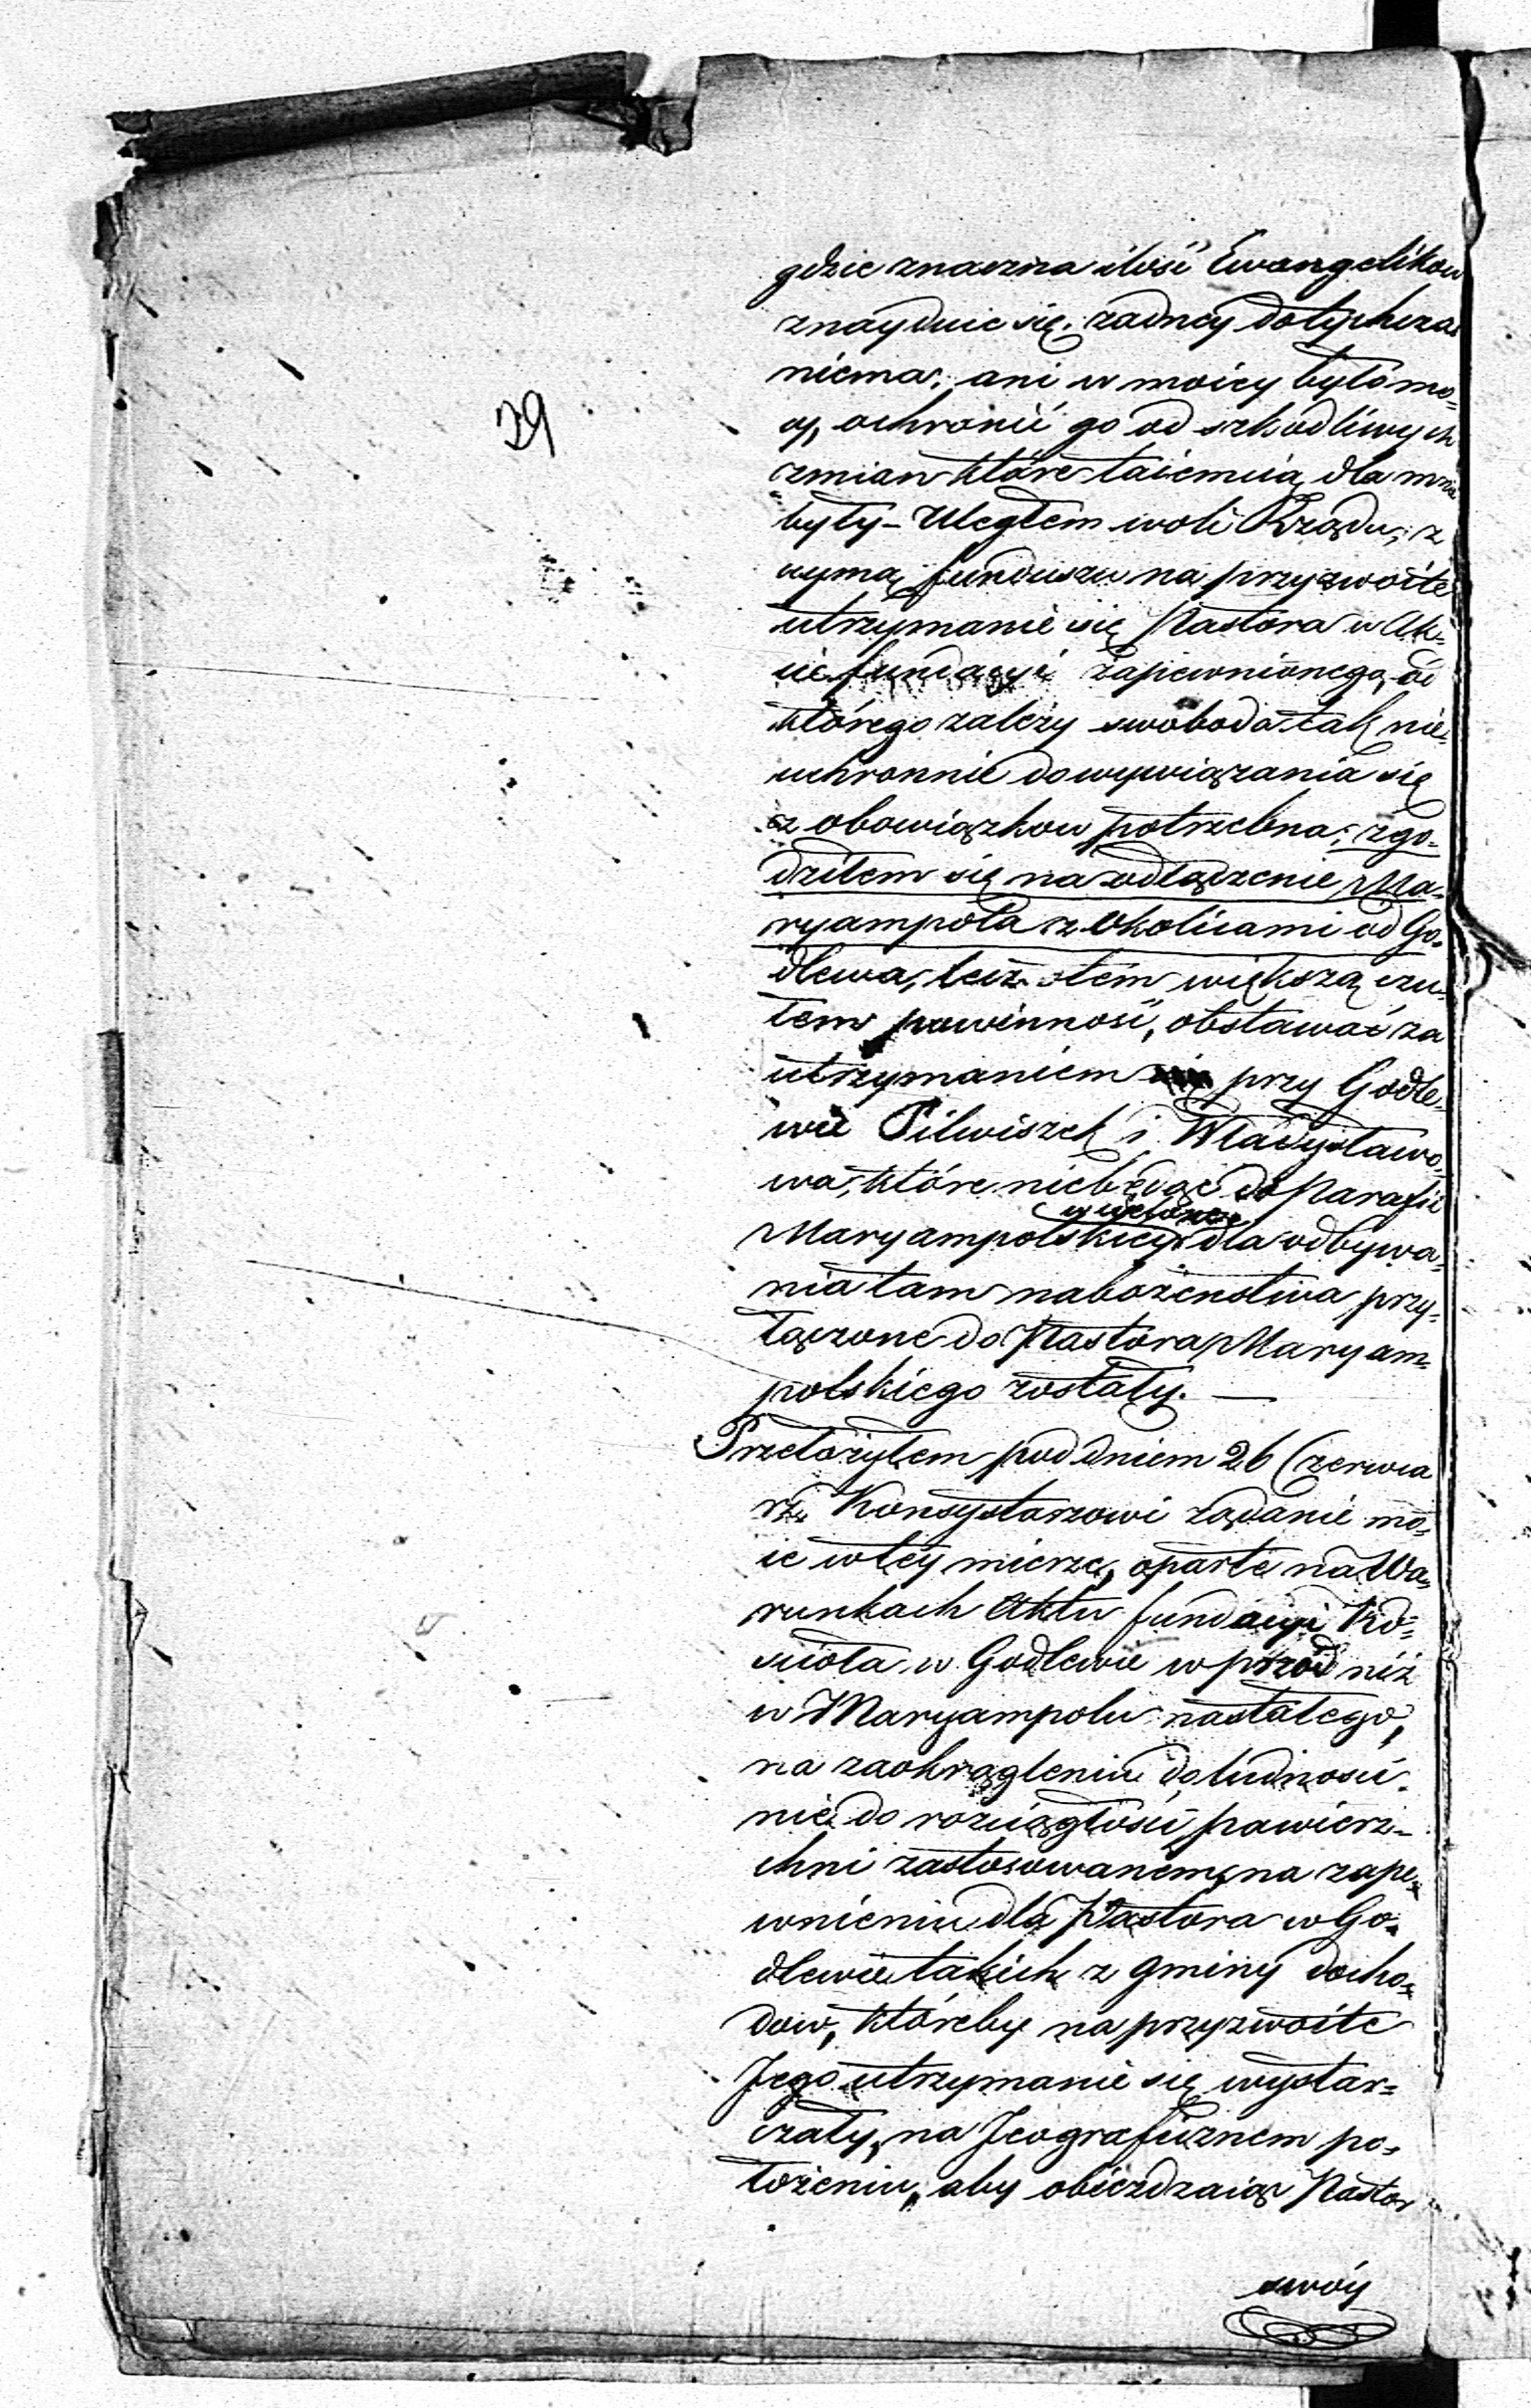 39
gdzie znaczna ilość Ewangelikow
znayduie się; żadney dotychczas
niema; ani w moiey było mo-
cy, ochronić go od szkodliwych
zmian które taiemnią dla mnie
były – Uległem woli Rządu; z
uymą funduszu na przyzwoite
utrzymanie się Pastora w Ak-
cie fundacyi zapewnionego, od
którego zależy swoboda tak nie-
uchronnie do wywiązania się
z obowiązkow potrzebna; zgo-
dziłem się na odłączenie Ma-
ryampola z okolicami od Go-
dlewa, lecz stem większą czu-
łem powinność, obstawać za
utrzymaniem przy Godle-
wie Pilwiszek i Władysławo-
wa, które niebędąc do Parafii
wcielone
Maryampolskiey dla odbywa-
nia tam nabożenstwa przy-
łączone do Pastora Maryam-
polskiego zostały. —
Przełożyłem pod dniem 26 Czerwca
r.z. Konsystorzowi żądanie mo-
ie w tey mierze, oparte na Wa-
runkach Aktu fundacyi Ko-
scioła w Godlewie wprzód niż
w Maryampolu nastałego,
na zaokrągleniu do ludnosci
nie do roziągłości powierz-
chni zastosowanem, na zape-
wnieniu dla Pastora w Go-
dlewie takich z gminy docho-
dow, któreby na przyzwoite
Jego utrzymanie się wystar-
czały, na Jeograficznem po-
łożeniu, aby obieżdzaiąc Pastor
swóy